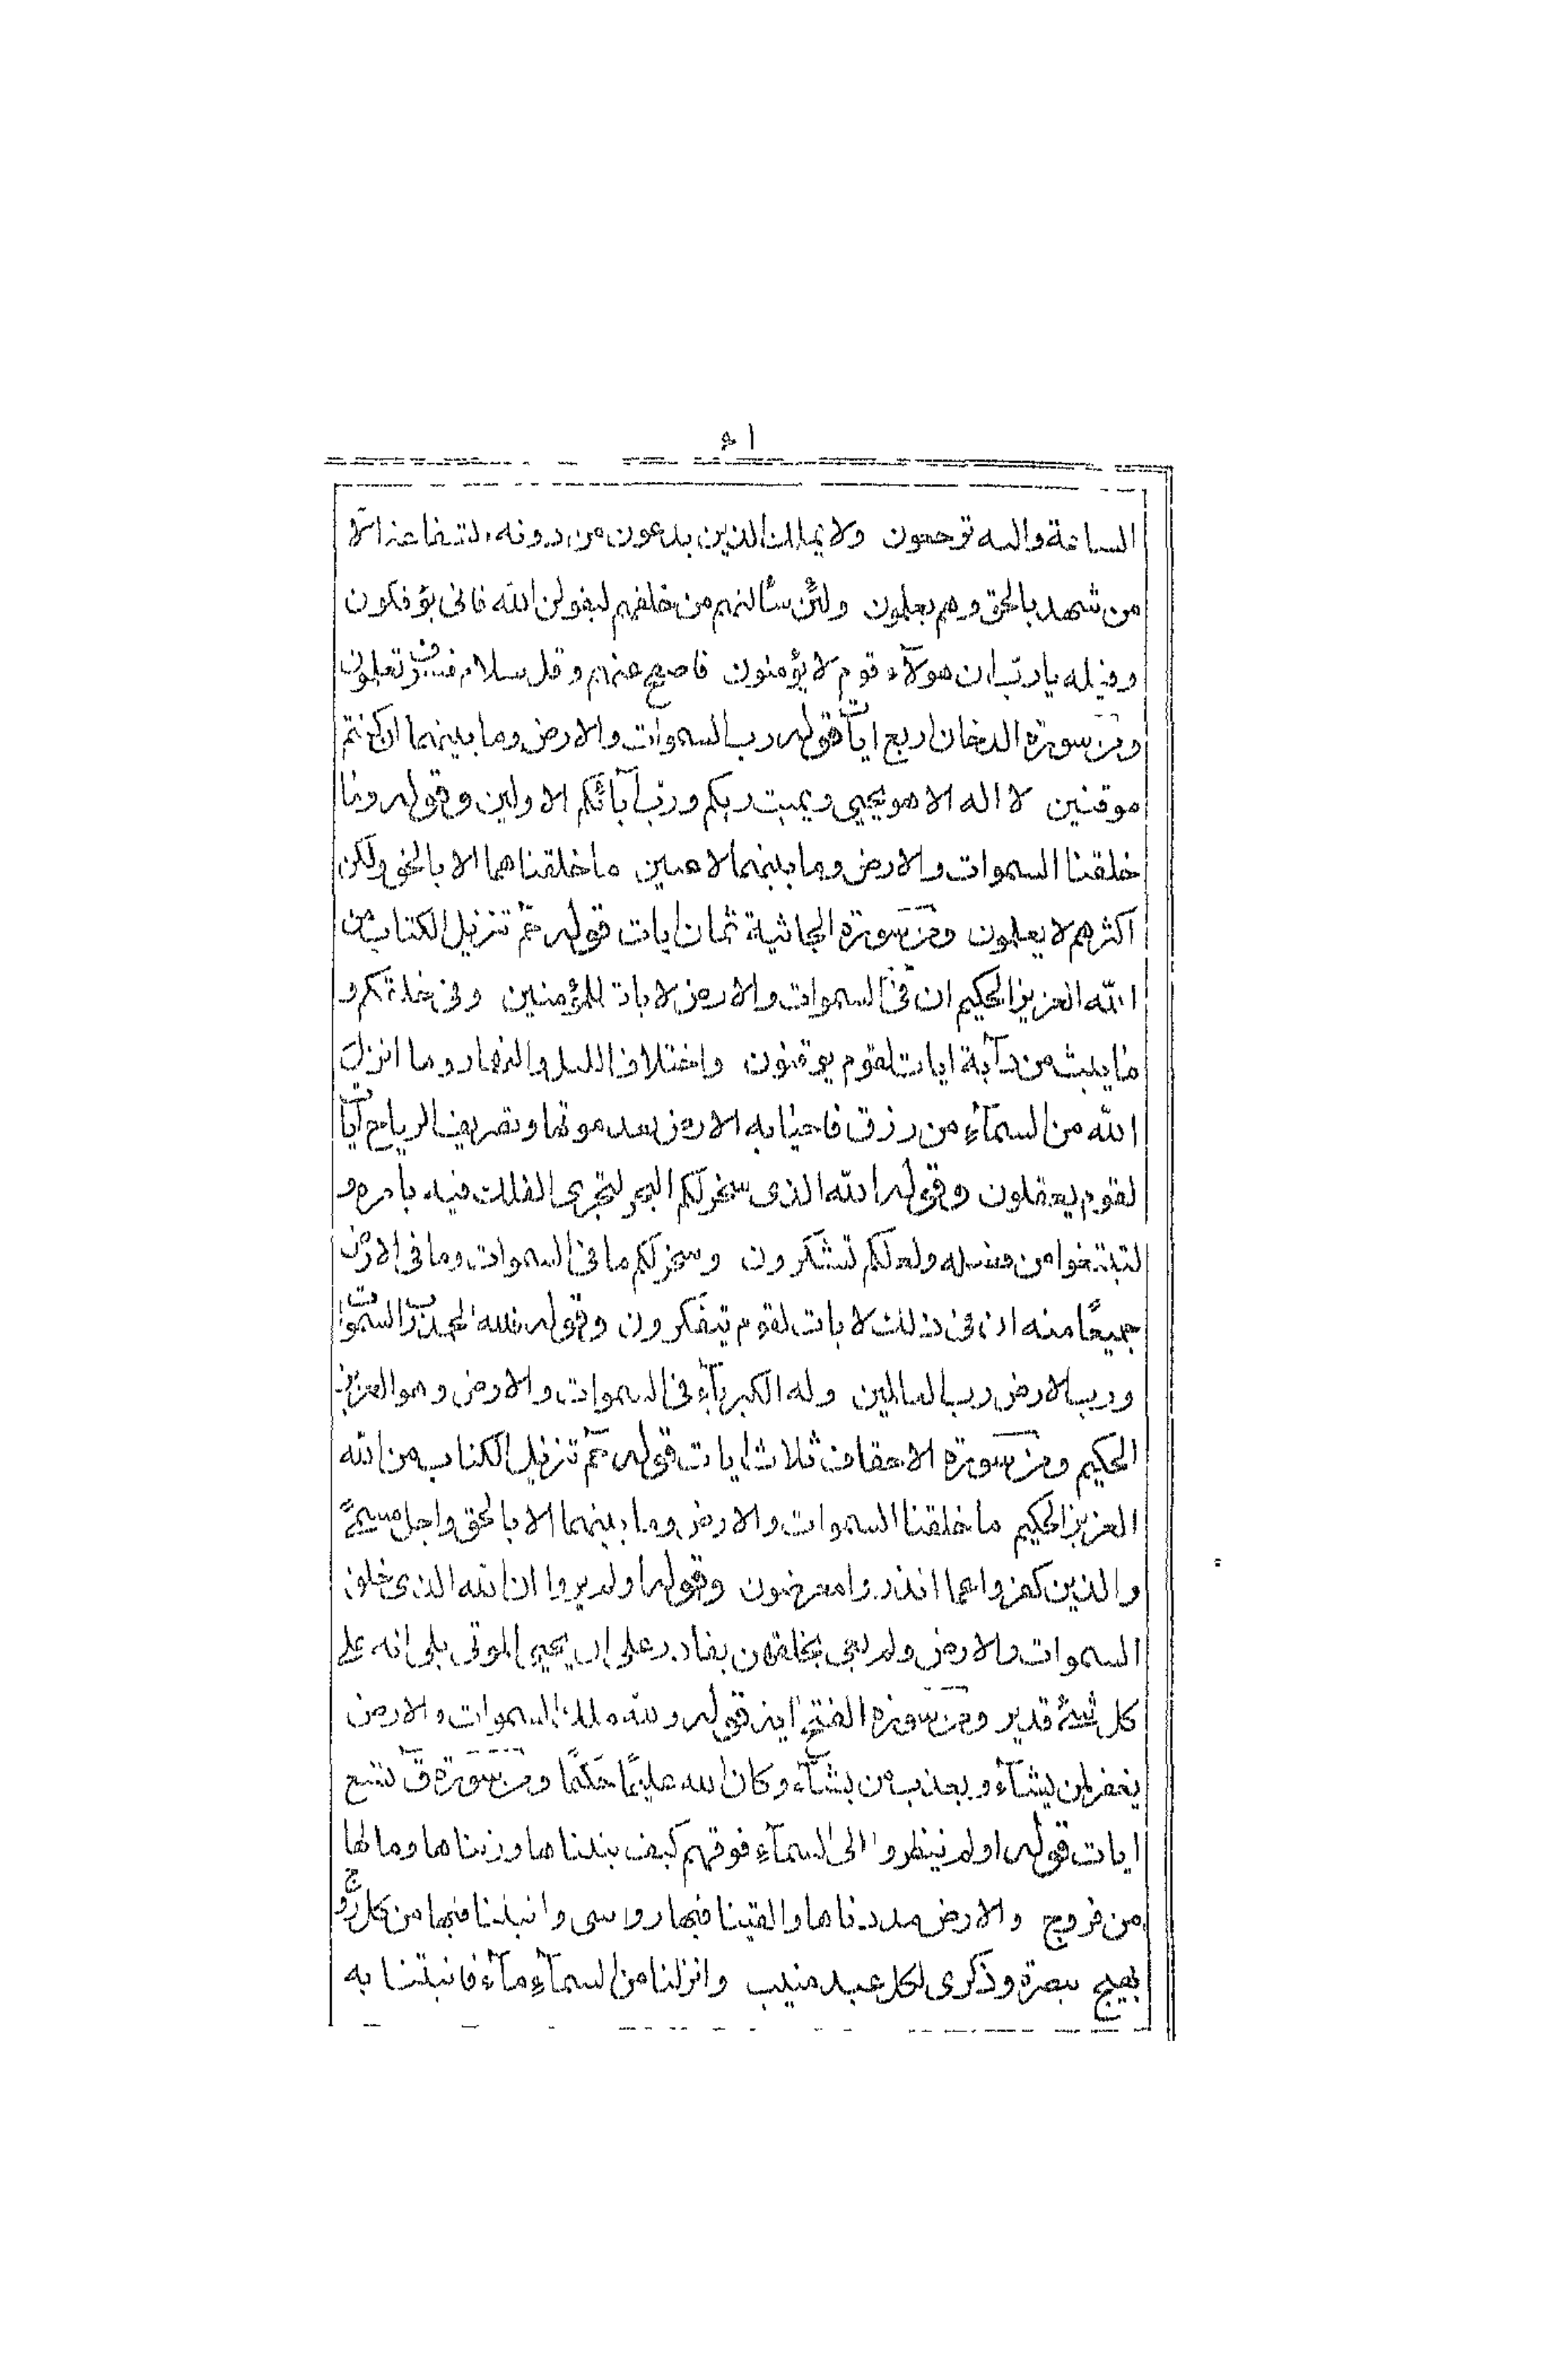 الساعة واليه ترجعون ولا يملك الذين يدعون من دونه الشفاعة الا
من شهد بالحق وهم يعلمون ولئن سألتهم من خلقهم ليقولن الله فانى يؤفكون
وقيله يا رب ان هولآء قوم لا يؤمنون فاصفح عنهم وقل سلام فسوف تعلمون
ومن سورة الدخان اربع ايات قوله رب السموات والارض وما بينهما ان كنتم
موقنين لا اله الا هو يحيي ويميت ربكم ورب آبائكم الاولين وقوله وما
خلقنا السموات والارض وما بينهما لاعبين ما خلقناهما الا بالحق ولكن
اكثرهم لا يعلمون ومن سورة الجاثية ثمان ايات قوله حم تنزيل الكتاب من
الله العزيز الحكيم ان في السموات والارض لايات للمؤمنين وفي خلقكم و
ما يبث من دآبة ايات لقوم يوقنون واختلاف الليل والنهار وما انزل
الله من السمآء من رزق فاحيا به الارض بعد موتها وتصريف الرياح آيات
لقوم يعقلون وقوله الله الذى سخر لكم البحر لتجرى الفلك فيه بامره و
لتبتغوا من فضله ولعلكم تشكرون وسخر لكم ما في السموات وما في الارض
جميعًا منه ان في ذلك لايات لقوم يتفكرون وقوله فلله الحمد رب السموات
ورب الارض رب العالمين وله الكبريآء في السموات والارض وهو العزيز
الحكيم ومن سورة الاحقاف ثلاث ايات قوله حم تنزيل الكتاب من الله
العزيز الحكيم ما خلقنا السموات والارض وما بينهما الا بالحق واجل مسمىً
والذين كفروا عما انذروا معرضون وقوله اولم يروا ان الله الذى خلق
السموات والارض ولم يعى بخلقهن بقادر على ان يحيي الموتى بلى انه على
كل شئ قدير ومن سورة الفتح اية قوله ولله ملك السموات والارض
يغفر لمن يشآء ويعذب من يشآء وكان الله عليمًا حكمًا ومن سورة ق تسع
ايات قوله اولم ينظروا الى السمآء فوقهم كيف بنيناها وزيناها وما لها
من فروج والارض مددناها والقينا فيها رواسى وانبتنا فيها من كل زوج
بهيج تبصرة وذكرى لكل عبد منيب وانزلنا من السمآء مآء فانبتنا به